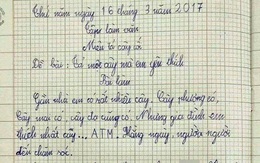 Thứ năm ngày 16 tháng 3 năm 2017
Tập làm văn
Miêu tả cây cối
Đề bài: Tả một cây mà em yêu thích
Bài làm
Gần nhà em có rất nhiều cây. Cây phượng có,
Cây mai có, cây đa cũng có. Nhưng gia đình em
thích nhất cây... ATM. Hằng ngày, người người
đến chăm sóc.